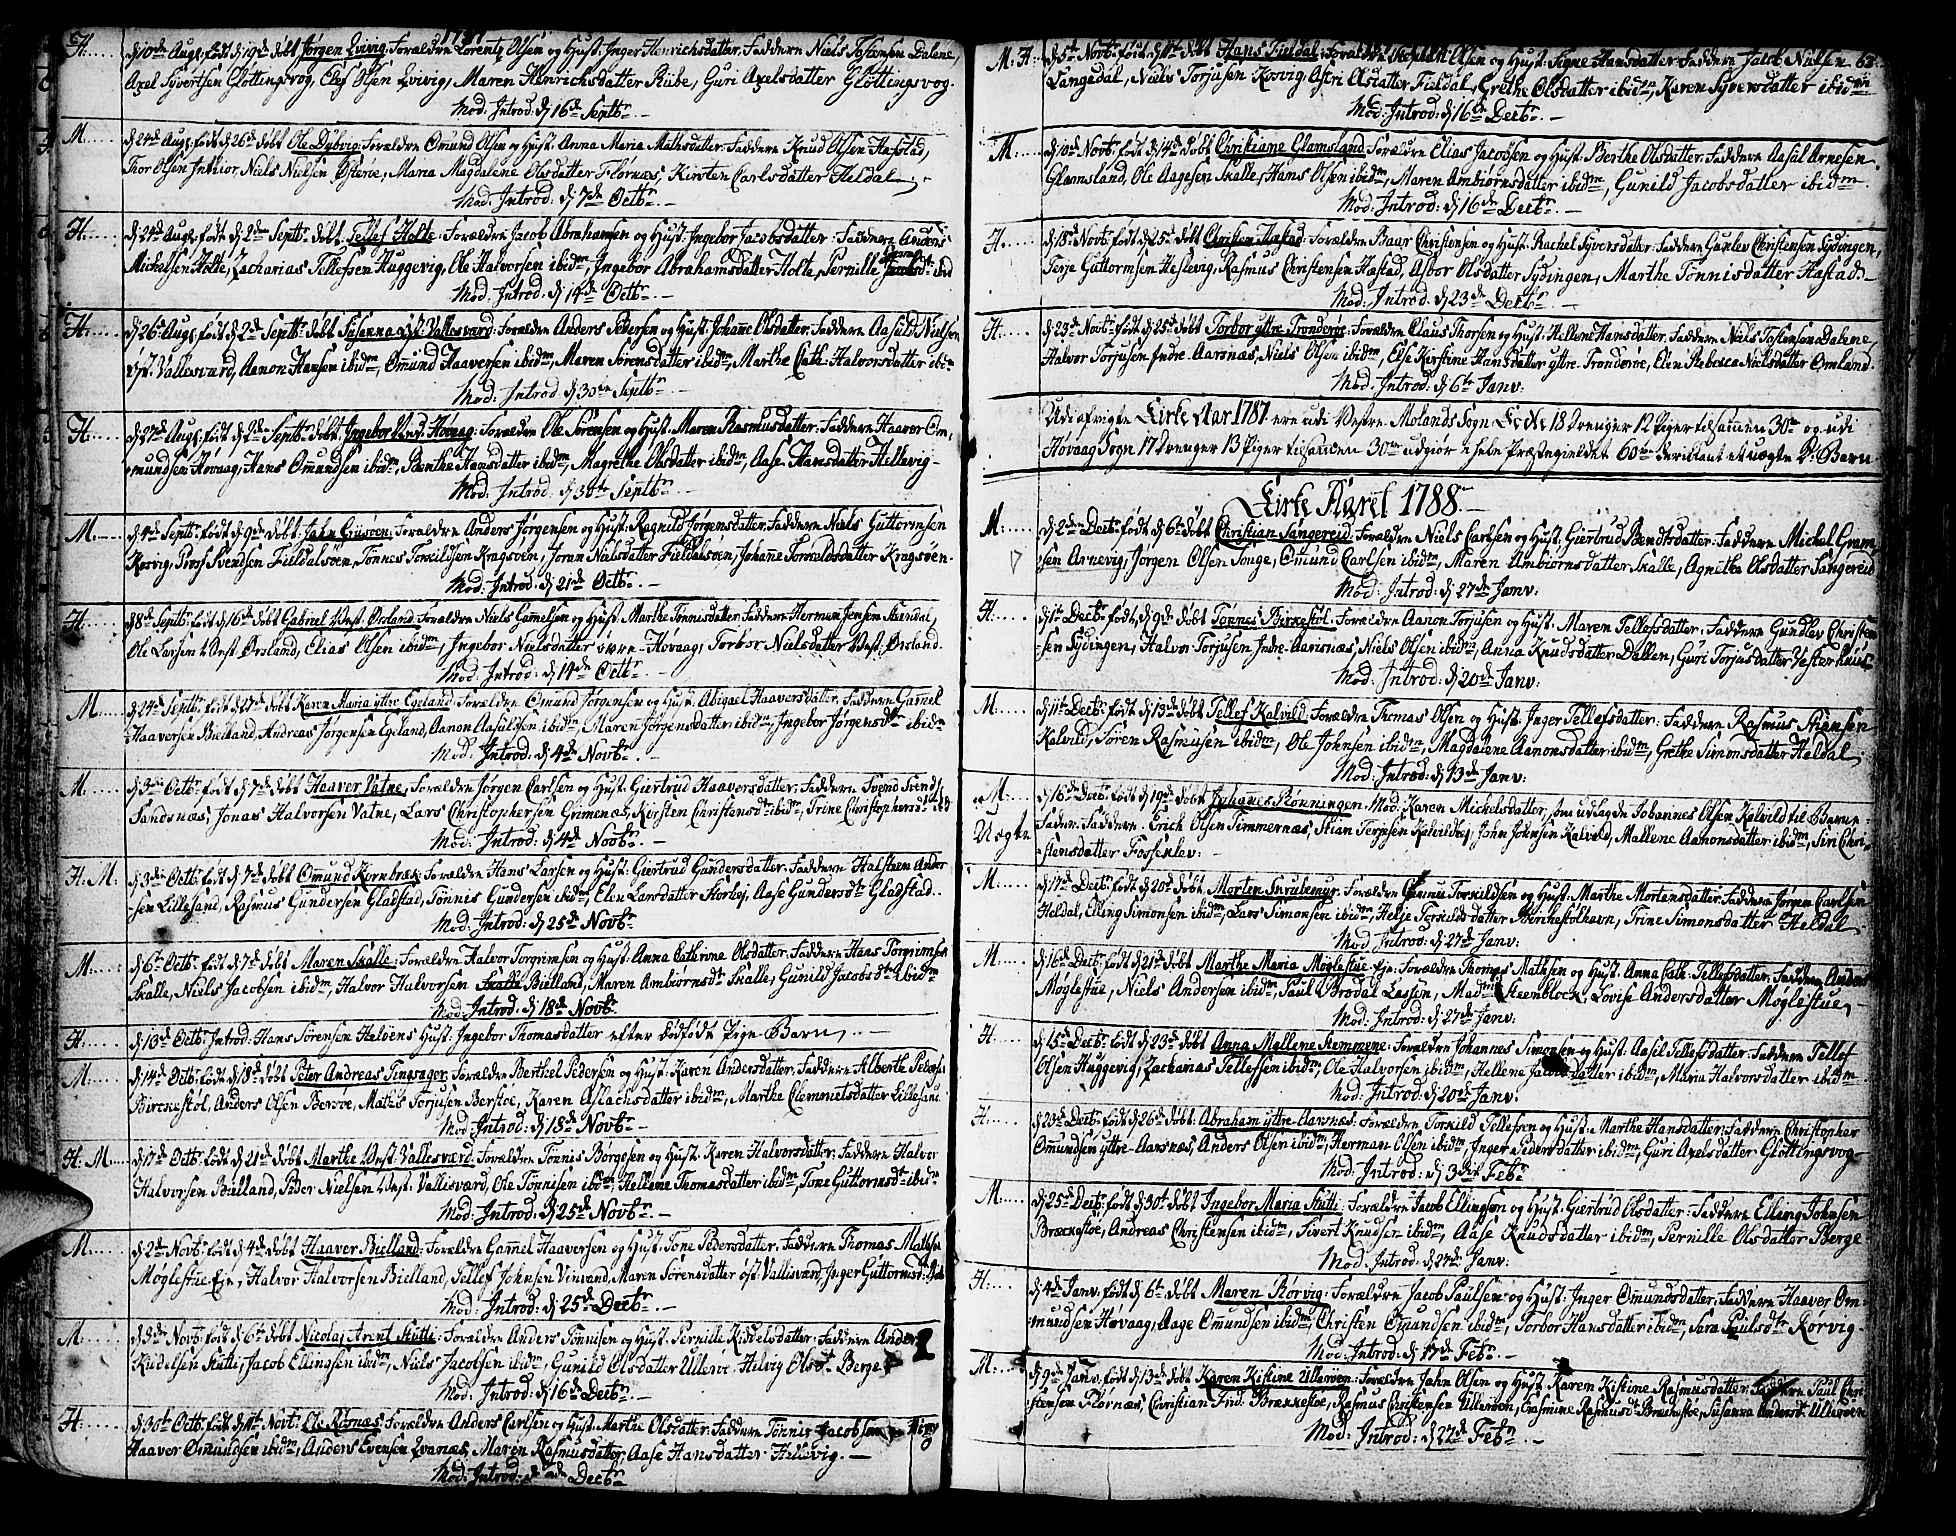 1787
H. d 10de Aug: født d 19de døbt Jørgen Qvivig: Forældre Lorentz Olsen og Hust: Inger Henrichsdatter: Faddere Niels Tostensen Dalene,
Axel Syvertsen Glottingsvog, Elef Olsen Qvivig, Maren Henrichsdatter Bube, Guri Axelsdatter Glottingsvog.
Mod: Introd: d 16de Septbr. —
M. d 24de Aug: født d 26de døbt Ole Dybvig: Forældre Omund Olsen og Hust: Anna Maria Mathsdatter: Faddere Knud Olsen Hafstad,
Thor Olsen Justior, Niels Nielsen Østerøe, Maria Magdalene Olsdatter Flørnæs, Kirsten Carlsdatter Heldal.
Mod: Introd: d 7de Octbr. —
H. d 24de Aug: født d 2den Septbr. døbt Tellef Holte: Forældre Jacob Abrahamsen og Hust: Ingebor Jacobsdatter: Faddere Anders
Michelsen Holte, Zacharias Tellefsen Huggevig, Ole Halvorsen ibidm, Ingebor Abrahamsdatter Holte, Pernille ibid
Mod: Introd: d 14de Octbr. —
H. d 26de Aug: født d 2de Septbr: døbt Susanna Øst. Vallesværd: Forældre Anders Pedersen og Hust: Johanne Olsdatter: Faddere Aasild Nielsen
Øst. Vallesværd, Aanon Hansen ibidm, Omund Haaversen ibidm, Maren Sørensdatter ibidm, Marthe Cath: Halvorsdatter ibidm
Mod: Introd: d 30te Septbr.
H. d 27de Aug: født d 2de Septbr: døbt Ingebor Ned. Høvaag: Forældre Ole Sørensen og Hust: Maren Rasmusdatter: Faddere Haaver Om-
mundsen Høvaag, Hans Omundsen ibidm, Berthe Hansdatter ibidm, Magrethe Olsdatter ibidm, Aase Hansdatter Hellevig
Mod: Introd: d 30te Septbr. —
M. d 4de Septbr: født d 9de døbt Jahn Grusøen: Forældre Anders Jørgensen og Hust: Ragnild Jørgensdatter: Faddere Niels Guttormsen
Korvig, Povel Svendsen Fieldalsøen, Tønnes Torkildsen Kragsøen, Joran Nielsdatter Fieldalsøen, Johane Torkildsdatter Kragsøen.
Mod: Introd: d 21de Octbr. —
H. d 8de Septbr: født d 16de døbt Gabriel Vest. Ørsland: Forældre Niels Gamelsen og Hust: Marthe Tønnisdatter: Faddere Herman Jensen Steendal,
Ole Larsen Vest. Ørsland, Elias Olsen ibidm, Ingebor Nielsdatter øvre-Høvaag, Torbor Nielsdatter Vest. Ørsland.
Mod: Introd: d 14de Octbr —
M. d 24de Septbr: født d 27de døbt Karen Maria yttre Egeland: Forældre Omund Jørgensen og Hust: Abigael Haaversdatter: Faddere Gamel
Haaversen Bielland, Andreas Jørgensen Egeland, Aanon Aasuldsen ibidm, Maren Jørgensdatter ibidm, Ingebor Jørgensdr ibidm
Mod: Introd: d 4de Novbr. —
M. d 3die Octbr: født d 7de døbt Haaver Vatne: Forældre Jørgen Carlsen og Hust: Giertrud Haaversdatter: Faddere Svend Svends
Sandnæs, Jonas Halvorsen Vatne, Lars Christophersen Grimenæs, Kirsten Christensdr ibidm, Trine Christophersdr ibid
Mod: Introd: d 4de Novbr. —
H. M. d 3die Octbr: født d 7de døbt Omund Kornbræk: Forældre Hans Larsen og Hust: Giertrud Gundersdatter: Faddere Halsteen Ander
-sen Lillesand, Rasmus Gundersen Gladstad, Tønnis Gundersen ibidm, Elen Larsdatter Storløj, Aase Gundersdr Gladstad.
Mod: Introd: d 25de Novbr. —
M. d 6te Octbr: født d 7de døbt Maren Skalle: Forældre Halvor Torgrimsen og Hust: Anna Cathrine Olsdatter: Faddere Hans Torgrimsen
Skalle, Niels Jacobsen ibidm, Halvor Halvorsen Skalle Bielland, Maren Ambiørnsdr Skalle, Gunild Jacobsdr ibidm
Mod: Introd: d 18de Novbr.
H. d 13de Octbr: Introd: Hans Sørensen Helviens Hust: Ingebor Thomasdatter efter dødfødt Pige Barn. —
M. d 14de Octbr: født d 18de døbt Peter Andreas Tingsager: Forældre Berthel Pedersen og Hust: Karen Andersdatter: Faddere Alberth Peders:
Birckestøl, Anders Olsen Bersøe, Mathis Torjusen Berstøe, Karen Aslachsdatter ibidm, Marthe Clemmetsdatter Lillesand
Mod: Introd: d 18de Novbr —
H. M. d 17de Octbr: født d 21de døbt Marthe Vest. Vallesværd: Forældre Tønnis Børgesen og Hust: Karen Halvorsdatter: Faddere Halvor
Halvorsen Bielland, Peder Nielsen Vest. Vallisværd, Ole Tønnisen ibidm, Hellene Thomasdatter ibidm, Tone Guttormsdr ibidm
Mod: Introd: d 25de Novbr. —
M. d 2de Novbr: født d 4de døbt Haaver Bielland: Forældre Gammel Haaversen og Hust: Tone Pedersdatter: Faddere Thomas Mathsen
Møglestue Eje, Halvor Halvorsen Bielland, Tellef Johnsen Vinvand, Maren Sørensdatter øst. Vallisværd, Inger Guttormsdr
Mod: Introd: d 25de Decbr. —
M. d 3die Novbr: født d 6te døbt Nicolaj Arent Stutte: Forældre Anders Tønnisen og Hust: Pernille Riddelsdatter: Faddere Anders
Rudelsen Stutte, Jacob Ellingsen ibidm, Niels Jacobsen ibidm, Gunild Olsdatter Ullerøe, Helvig Olsdr Berge
Mod: Introd: d 16de Decbr. —
H. d 30te Octbr: født d 11te Novbr: Ole Rosnas: Forældre Anders Carlsen og Hust: Marthe Olsdatter: Faddere Tønnis Jacobsen
Haaver Omundsen ibidm, Anders Evensen Qvarnæs, Maren Rasmusdatter, Aase Hansdatter Hellevig. —
Mod: Introd: Decbr
M. H. d 5te Novbr: født d 11te døbt Hans Fieldal: Forældre Stephan Olsen og Hust: Signe Hansdatter: Faddere Jacob Nielsen 62.
Langedal, Niels Torjusen Korvig, Astri Olsdatter Fieldal, Grethe Olsdatter ibidm, Karen Syversdatter ibidm
Mod: Introd: d 16de Decbr. —
M. d 10de Novbr: født d 14de døbt Christiane Glamsland: Forældre Elias Jacobsen og Hust: Berthe Olsdatter: Faddere Aasul Arnesen
Glamsland, Ole Aagesen Skalle, Hans Olsen ibidm, Maren Ambiørnsdatter ibidm, Gunild Jacobsdatter ibidm.
Mod: Introd: d 16de Decbr. —
H. d 18de Novbr: født d 25de døbt Christen Hastad: Forældre Baar Christensen og Hust: Rachel Syversdatter: Faddere Gunlev Christensen Sydingen,
Terje Guttormsen Heslevig, Rasmus Christensen Hastad, Asbor Olsdatter Sydingen, Marthe Tønnisdatter Hastad. —
Mod: Introd: d 23de Decbr. —
H. d 23de Novbr: født d 25de døbt Torbor yttre Trondøroe: Forældre Claus Thorsen og Hust: Hellene Hansdatter: Faddere Niels Tostensen Dalene,
Halvor Torjusen Indre Aarsnæs, Niels Olsen ibidm, Else Kirstine Hansdatter yttre-Trondøroe, Elen Rebecca Nielsdatter Omland.
Mod: Introd: d 6te Janv:
Udi afvigte Kirke Aar 1787 ere udi Vestre Molands Sogn fødte 18 Drenger 12 Piger tilsamen 30te og udi
Høvaag Sogn 17 Drenger 13 Piger tilsamen 30te udgiør i hele Præstegieldet 60tve deriblant et uægte D: Barn
Kirke Aaret 1788. —
M. d 2den Decbr: født d 6te døbt Christian Sangereid: Forældre Niels Carlsen og Hust: Giertrud Bendtsdatter: Faddere Michel Gram
sen Arnevig, Jørgen Olsen Tonge, Omund Carlsen ibidm, Maren Ambiørnsdatter Skalle, Agnethe Olsdatter Sangereid
Mod: Introd: d 27de Janv:
H. d 1te Decbr: født d 9de døbt Tønnes Birkestøl: Forældre Aaron Torjusen og Hust: Maren Tellefsdatter: Faddere Gundlev Christen
-sen Sydingen, Halvor Torjusen Indre Aarsnæs, Niels Olsen ibidm, Anna Knudsdatter Dallen, Guri Torjusdatter Vesterhuus
Mod: Introd: d 20de Janv:
M. d 11te Decbr: født d 13de døbt Tellef Kalvild: Forældre Thomas Olsen og Hust: Inger Tellefsdatter: Faddere Rasmus Stiansen
Kalvild, Søren Rasmusen ibidm, Ole Johnsen ibidm, Magdalene Aanonsdatter ibidm, Grethe Simonsdatter Heldal
Mod: Introd: d 13de Janv:
M. d 16de Decbr: født d 19de døbt Johannes Rønningen: Mod: Karen Michelsdatter, som udlagde Johannes Olsen Kalvild til Barne-
Uægte Fader: Faddere Erich Olsen Timmernæs, Stian Terjesen Kalvildløj, John Johnsen Kalvild, Mallene Aanonsdatter ibidm, Siri Chri-
stensdatter Fossenlev: —
M. d 17de Decbr: født d 20de døbt Morten Snrukemyr: Forældre Gunnu Torkildsen og Hust: Marthe Mortensdatter: Faddere Jørgen Carlsen
Heldal, Elling Simonsen ibidm, Lars Simonsen ibidm, Helje Torkildsdatter Birckestølhavn, Trine Simonsdatter Heldal
Mod: Introd: d 27de Janv:
M. d 16de Decbr: født d 21de døbt Marthe Maria Møglestue Eje: Forældre Thomas Mathsen og Hust: Anna Cath: Tellefsdatter: Faddere Anders
Møglestue, Niels Andersen ibidm, Paul Brodal Lassen, Madm Steenblock, Lovise Andersdatter Møglestue —
Mod: Introd: d 27de Janv:
H. d 15de Decbr: født d 23de døbt Anna Mallene Stemmene: Forældre Johannes Simonsen og Hust: Aasil Tellefsdatter: Faddere Tellef
Olsen Huggevig, Zacharias Tellefsen ibidm, Ole Halvorsen ibidm, Hellene Jacobsdatter ibidm, Maria Halvorsdatter ibidm.
Mod: Introd: d 20de Janv:
H. d 23de Decbr: født d 26de døbt Abraham yttre Aarsnæs: Forældre Torkild Tellefsen og Hust: Marthe Hansdatter: Faddere Christopher
Omundsen yttre-Aarsnæs, Anders Olsen ibidm, Herman Olsen ibidm, Inger Pedersdatter ibidm, Guri Axelsdatter Glottingsvog
Mod: Introd: d 3die Febr
M. d 25de Decbr: født d 30te døbt Ingebor Maria Stutte: Forældre Jacob Ellingsen og Hust: Giertrud Olsdatter: Faddere Elling Johnsen
Brækkestøe, Andreas Christensen ibidm, Sivert Knudsen ibidm, Aase Knudsdatter ibidm, Pernille Olsdatter Berge
Mod: Introd: d 27de Janv:
H. d 4de Janv: født d 6te døbt Maren Korvig: Forældre Jacob Paulsen og Hust: Inger Omundsdatter: Faddere Haaver Om-
mundsen Høvaag, Aage Omundsen ibidm, Christen Omundsen ibidm, Torbor Hansdatter ibidm, Sara Pulsdtr Korvig.
Mod: Introd: d 17de Febr. —
M. d 9de Janv: født d 13de døbt Karen Kistine Ullerøen: Forældre Jahn Olsen og Hust: Karen Kistine Rasmusdatter: Faddere Paul Chri-
stensen Flørnæs, Christian Fred: Brækkestøe, Rasmus Christensen Ullerøen, Erasmine Rasmusdr Brækkestøe, Susanna Andersdr Ullerøen
Mod: Introd: d 22de Febr. —